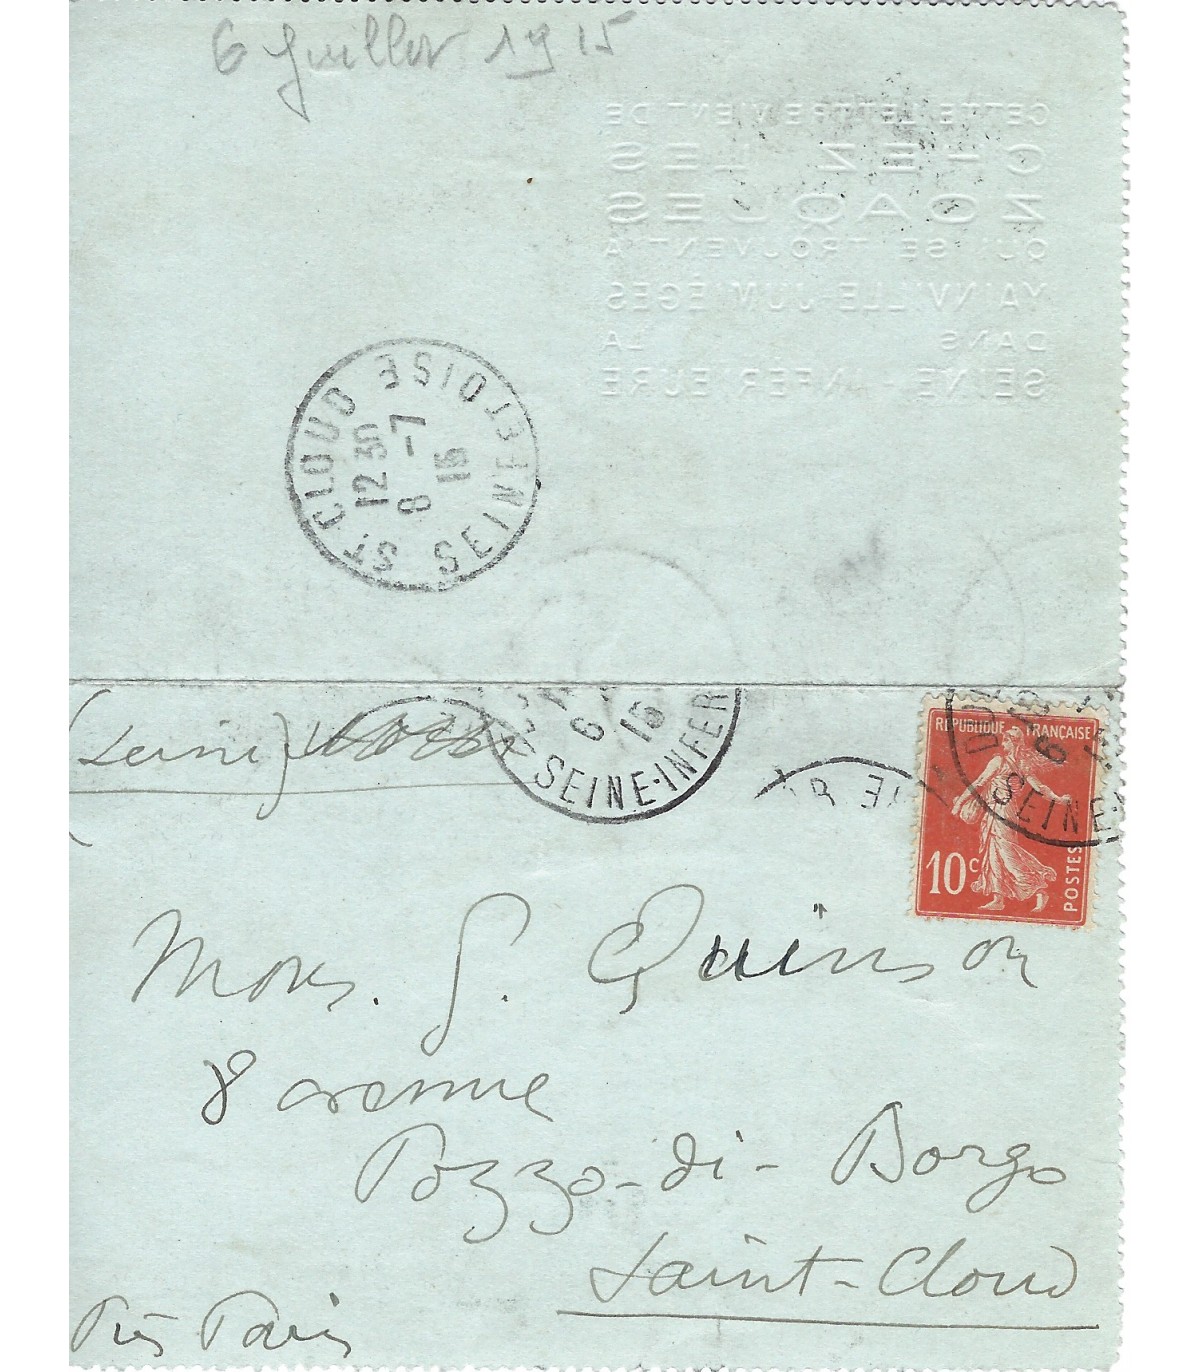 6 Juillet 1915
CETTE LETTRE VIENT DE
CHEZ LES
ZOAQUES
QUI SE TROUVENT A
YAINVILLE-JUMIÈGES
DANS LA
SEINE INFERIEURE
ST CLOUD SEINE ET OISE
12 30
8 -7
15
6
SEINE-INFER
REPUBLIQUE FRANÇAISE
10c
POSTES
6
SEINE-
Mons. G. Quinson
8 avenue
Pozzo-di-Borgo
Saint-Cloud
Près Paris